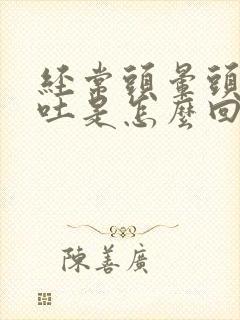 經常頭暈頭
吐是怎麼回
陳善廣